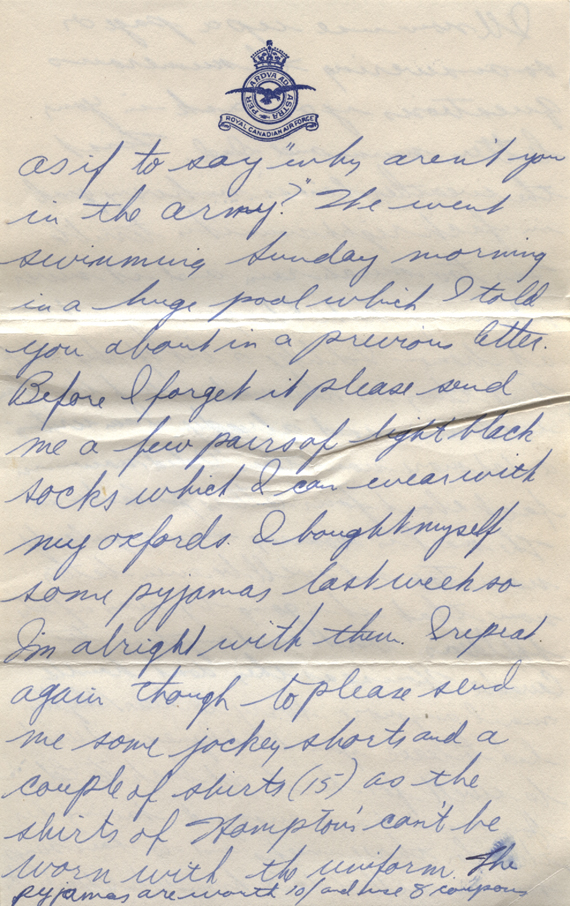 PER ARDVA AD ASTRA
ROYAL CANADIAN AIR FORCE
as if to say "why aren't you
in the army?" We went
swimming Sunday morning
in a huge pool which I told
you about in a previous letter.
Before I forget it please send
me a few pairs of light black
socks which I can wear with
my oxfords. I bought myself
some pyjamas last week so
I'm alright with them. I repeat
again though to please send
me some jockey shorts and a
couple of shirts (15) as the
shirts of Hampton's can't be
worn with the uniform. The
pyjamas are worth 10/ and use 8 coupons